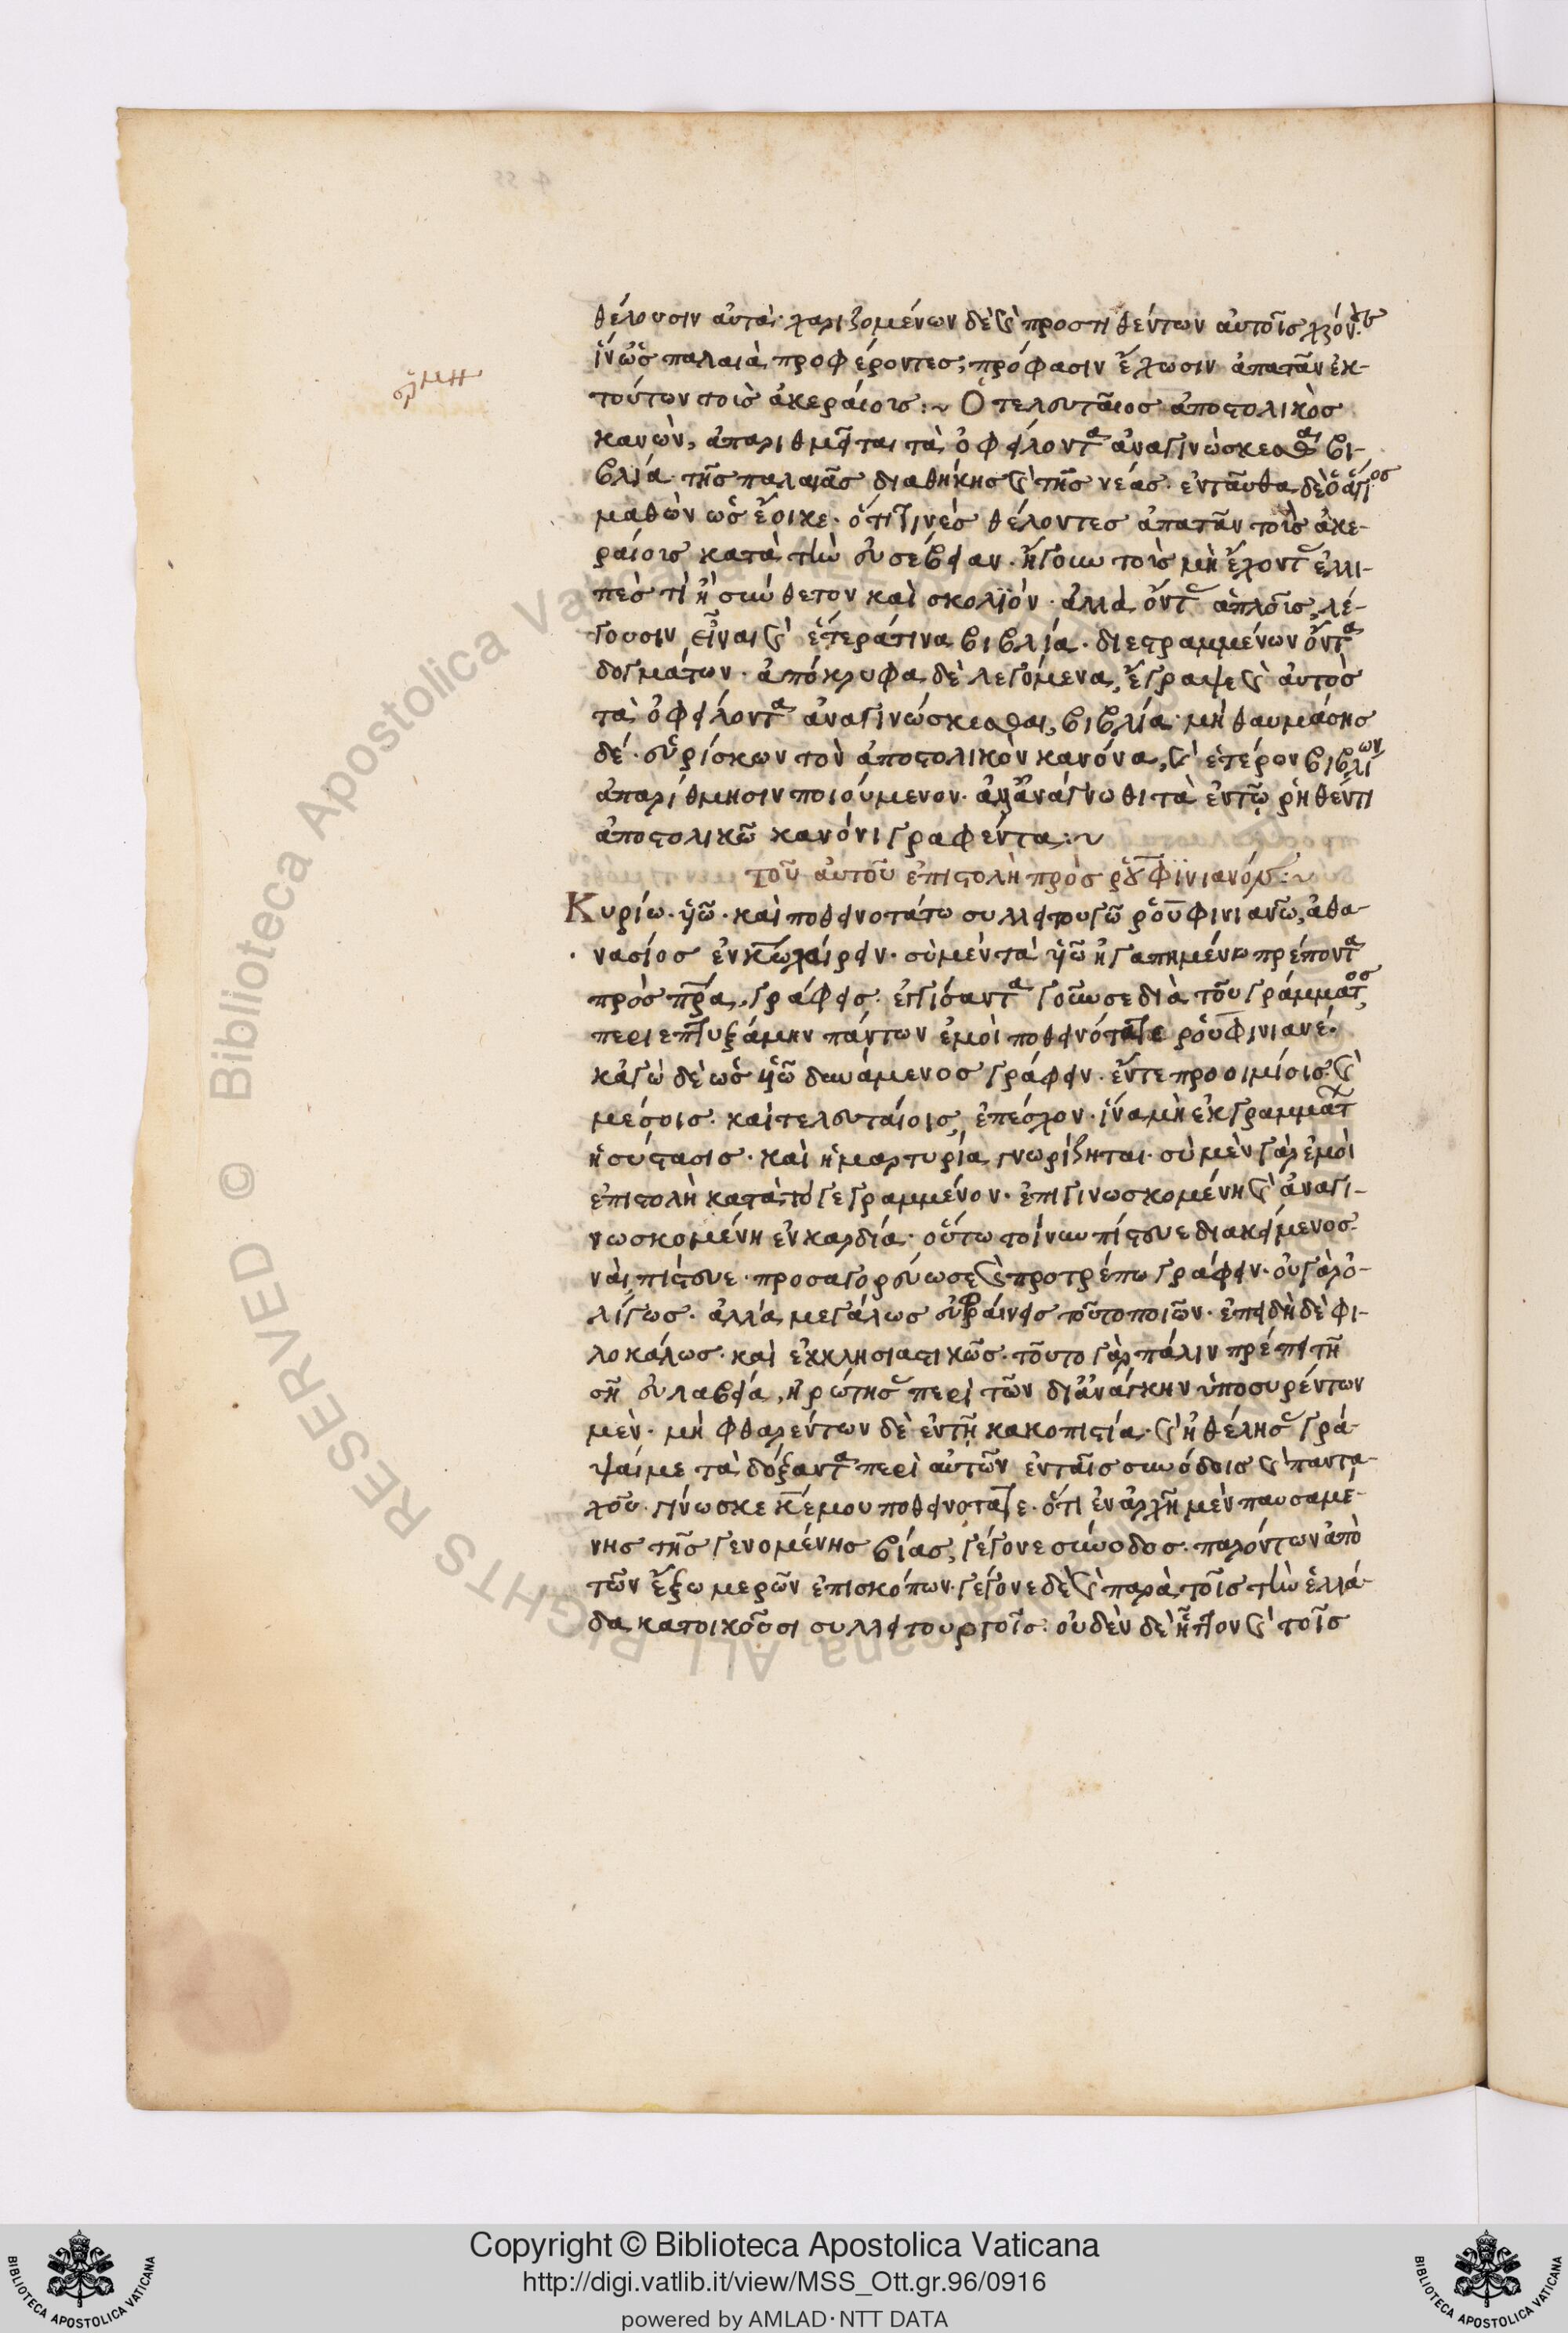 ὅρμη
θέλουσιν αὐτά· χαριζομένων δὲ καὶ προστιθέντων αὐτοῖς χρόνους
ἵν' ὡς παλαιὰ προφέροντες, πρόφασιν ἔχωσιν ἀπατᾶν ἐκ
τούτων τοὺς ἀκεραίους :~ Ὁ τελευταῖος ἀποστολικὸς
κανών, ἀπαριθμεῖται τὰ ὀφείλοντα ἀναγινώσκεσθαι βι-
βλία τῆς παλαιᾶς διαθήκης καὶ τῆς νέας. ἐνταῦθα δὲ ὁ ἅγιος
μαθὼν ὡς ἔοικε. ὅτι τινὲς θέλοντες ἀπατᾶν τοὺς ἀκε-
ραίους κατὰ τὴν εὐσέβειαν. ἤγουν τοὺς μὴ ἔχοντας ἐλλι-
πές τι ἢ σύνθετον καὶ σκολιόν. ἀλλὰ ὄντας ἁπλοῦς, λέ-
γουσιν εἶναι καὶ ἕτερά τινα βιβλία. διεστραμμένων ὄντα
δογμάτων. ἀπόκρυφα δὲ λεγόμενα, ἔγραψε καὶ αὐτὸς
τὰ ὀφείλοντα ἀναγινώσκεσθαι, βιβλία· μὴ θαυμάσῃς
δέ. εὑρίσκων τὸν ἀποστολικὸν κανόνα, καὶ ἑτέρων βιβλίων
ἀπαρίθμησιν ποιούμενον. ἀλλ' ἀνάγνωθι τὰ ἐν τῷ ῥηθέντι
ἀποστολικῷ κανόνι γραφέντα :~
τοῦ αὐτοῦ ἐπιστολὴ πρὸς ῥουφινιανόν :~
Κυρίω. υἱῶ. καὶ ποθεινοτάτω συλλειτουργῶ ῥουφινιανῶ, ἀθα-
νάσιος ἐν κῶ χαίρειν. σὺ μὲν τὰ υἱῶ ἠγαπημένω πρέποντα
πρὸς πρα, γράφεις. ἐγγίσαντα γοῦν σε διὰ τοῦ γράμματος,
περιεπτυξάμην πάντων ἐμοὶ ποθεινότατε ῥουφινιανέ.
κἀγὼ δὲ ὡς υἱῶ δυνάμενος γράφειν. ἔν τε προοιμίοις καὶ
μέσοις. καὶ τελευταίοις, ἐπέσχον. ἵνα μὴ ἐκ γραμμάτων
ἡ σύστασις. καὶ ἡ μαρτυρία γνωρίζηται. σὺ μὲν γὰρ ἐμοὶ
ἐπιστολὴ κατὰ τὸ γεγραμμένον. ἐπιγινωσκομένη καὶ ἀναγι-
νωσκομένη ἐν καρδία. οὕτω τοίνυν πίστευε διακείμενος
ναὶ πίστευε. προσαγορεύω σε καὶ προτρέπω γράφειν. οὐ γὰρ ὀ-
λίγως. ἀλλὰ μεγάλως εὐφραίνεις τοῦτο ποιῶν. ἐπειδὴ δὲ φι-
λοκάλως. καὶ ἐκκλησιαστικῶς. τοῦτο γὰρ πάλιν πρέπει τῆ
σῆ εὐλαβεία, ἠρώτησας περὶ τῶν δι' ἀνάγκην ὑποσυρέντων
μέν. μὴ φθαρέντων δὲ ἐν τῆ κακοπιστία. καὶ ἠθέλησας γρά-
ψαί με τὰ δόξαντα περὶ αὐτῶν ἐν ταῖς συνόδοις καὶ παντα-
χοῦ. γίνωσκε κέ μου ποθεινότατε. ὅτι ἐν ἀρχῆ μὲν παυσαμέ-
νης τῆς γενομένης βίας, γέγονε σύνοδος. παρόντων ἀπὸ
τῶν ἔξω μερῶν ἐπισκόπων. γέγονε δὲ καὶ παρὰ τοῖς τὴν ἑλλά-
δα κατοικοῦσι συλλειτουργοῖς. οὐδὲν δὲ ἧττον καὶ τοῖς
Copyright © Biblioteca Apostolica Vaticana
http://digi.vatlib.it/view/MSS_Ott.gr.96/0916
powered by AMLAD·NTT DATA
BIBLIOTECA APOSTOLICA VATICANA
BIBLIOTECA APOSTOLICA VATICANA
© Biblioteca Apostolica Vaticana, ALL RIGHTS RESERVED